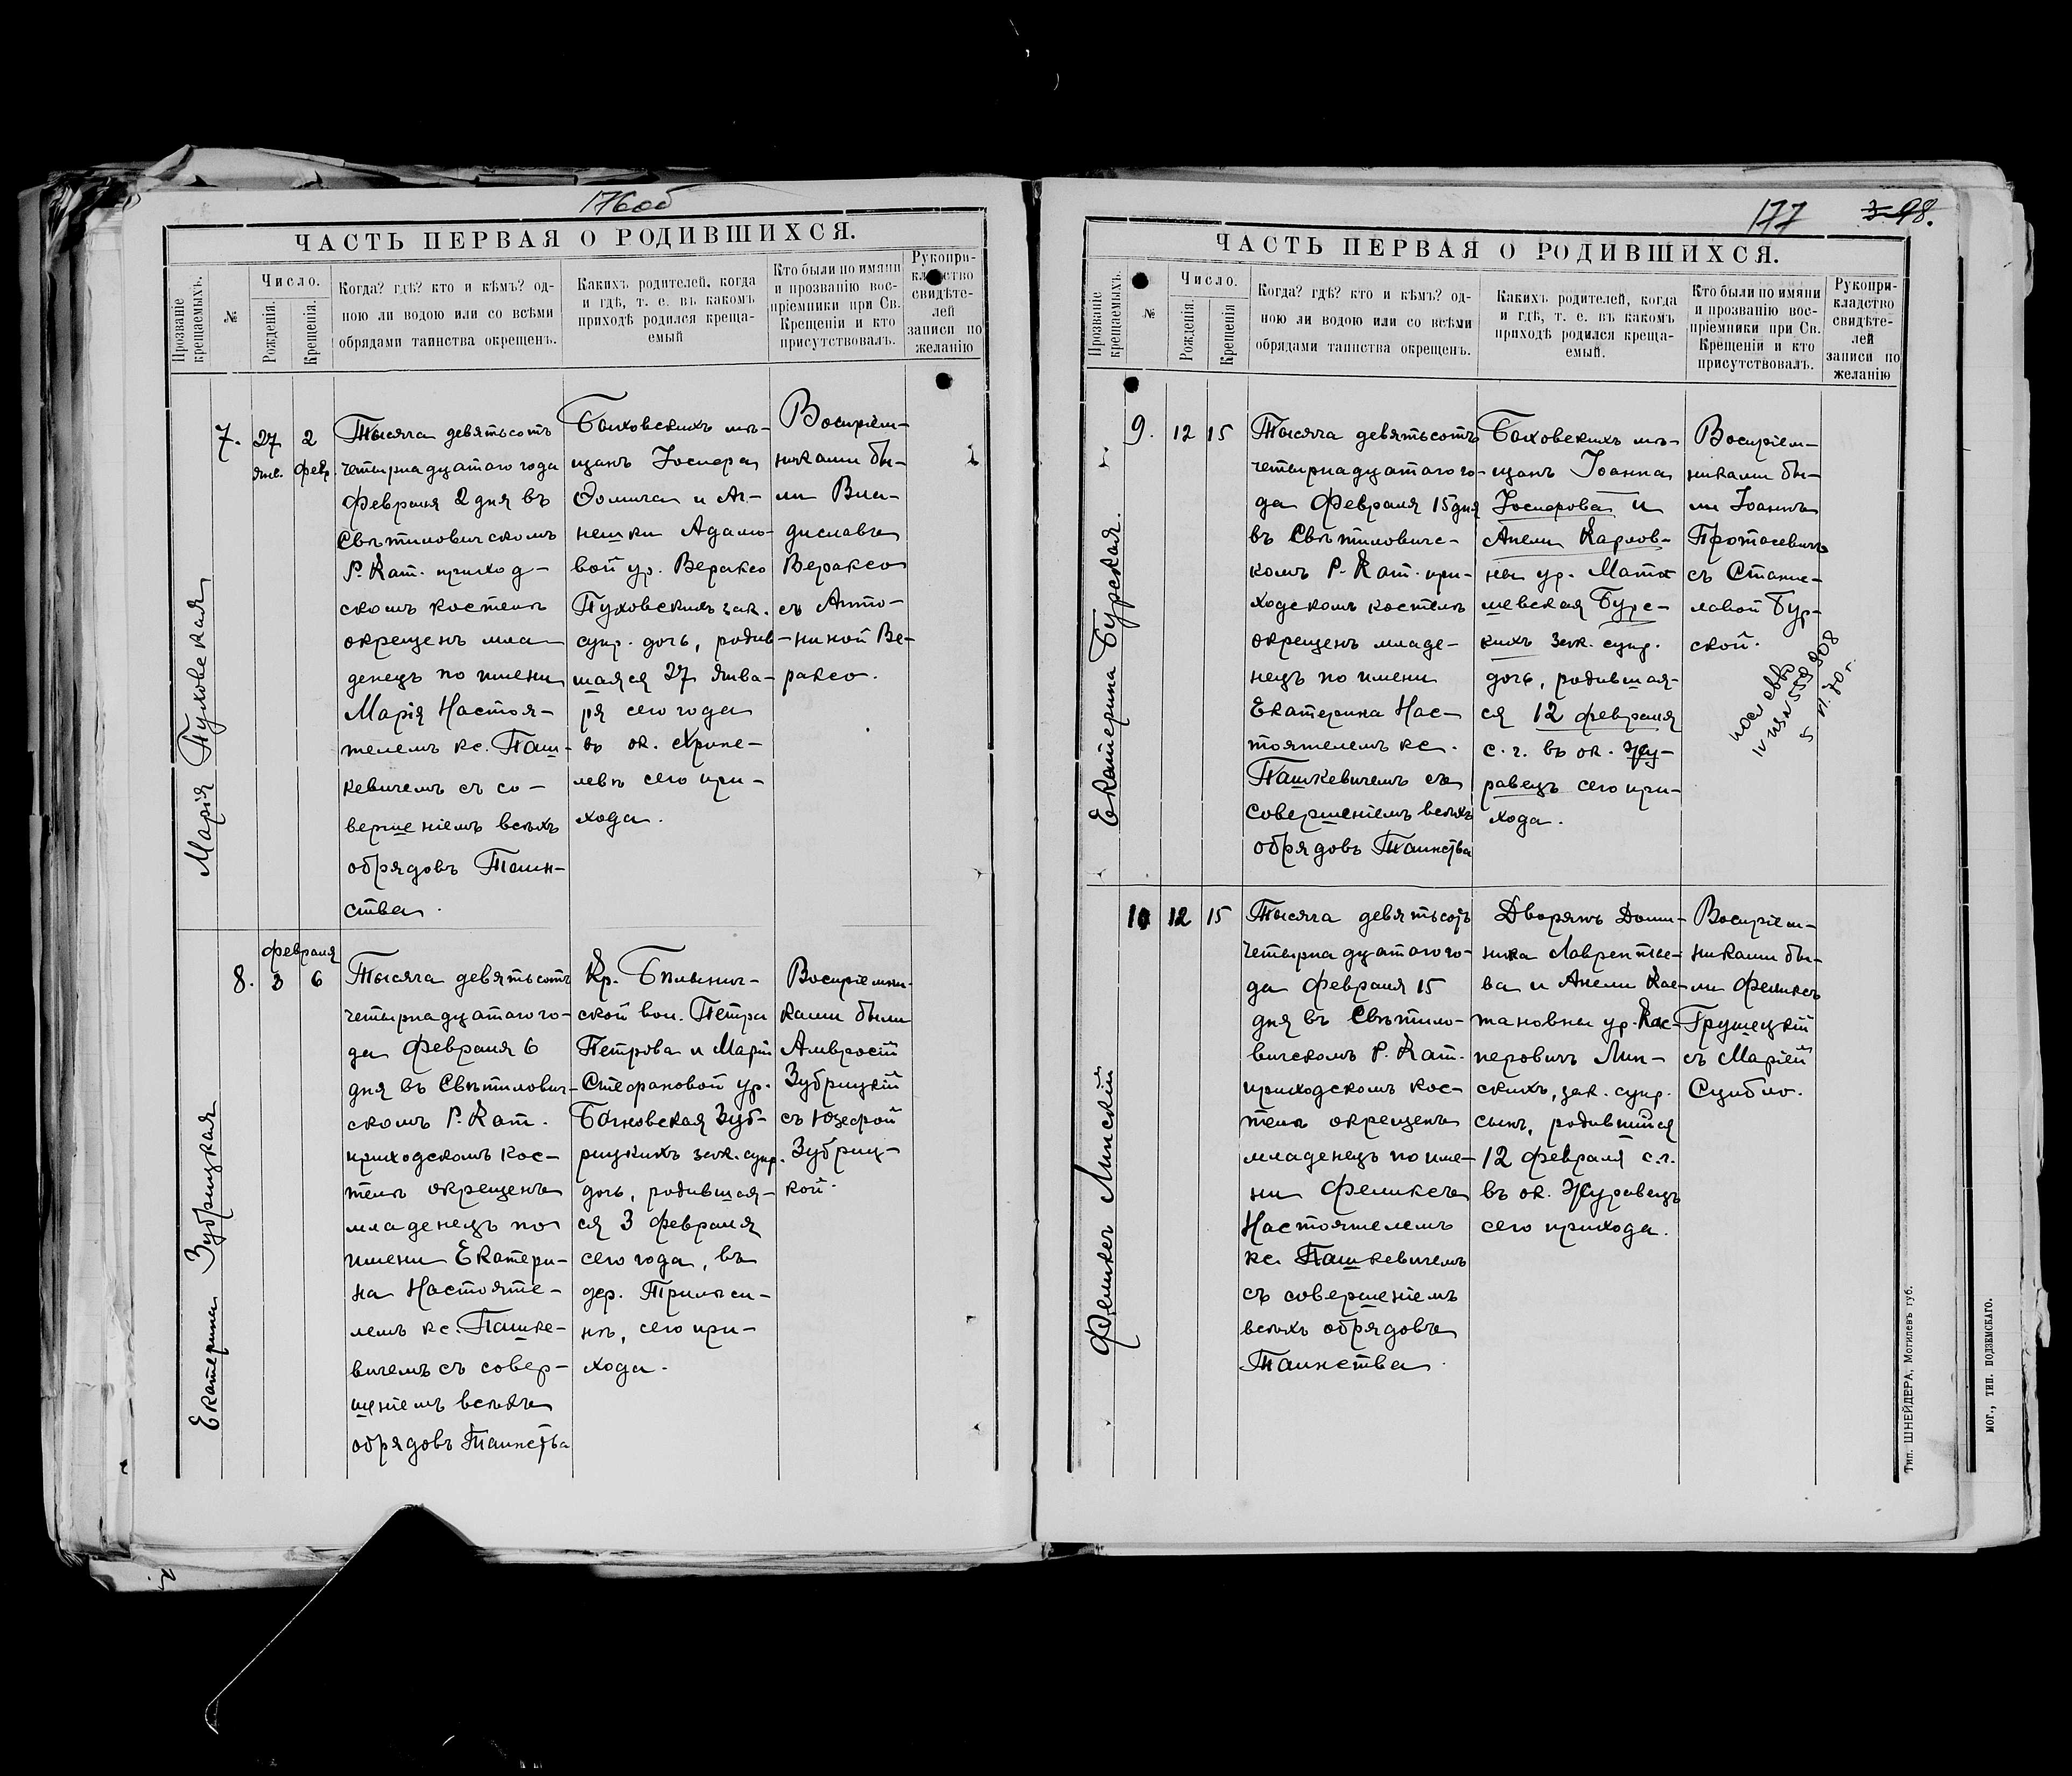 176об
ЧАСТЬ ПЕРВАЯ О РОДИВШИХСЯ.
Прозваніе крещаемыхъ.
№
Число.
Рожденія.
Крещенія.
Когда? гдѣ? кто и кѣмъ? од-
ною ли водою или со всѣми
обрядами таинства окрещенъ.
Какихъ родителей, когда
и гдѣ, т. е. въ какомъ
приходѣ родился креща-
емый
Кто были по имяни
и прозванію вос-
пріемники при Св.
Крещеніи и кто
присутствовалъ.
Рукопри-
кладство
свидѣте-
лей
записи по
желанію
Марія Пуховская
7.
27
янв.
2
фев.
Тысяча девятьсотъ
четырнадцатаго года
Февраля 2 дня въ
Свѣтиловичскомъ
Р. Кат. приход-
скомъ костелѣ
окрещенъ мла-
денецъ по имени
Марія Настоя-
телемъ кс. Паш-
кевичемъ съ со-
вершеніемъ всѣхъ
обрядовъ Таин-
ства.
Быховскихъ мѣ-
щанъ Іосифа
Фомича и Аг-
нешки Адамо-
вой ур. Вераксо
Пуховскихъ зак.
супр. дочь, родив-
шаяся 27 янва-
ря сего года
въ ок.
сего при-
хода.
Воспріем-
никами бы-
ли Вла-
диславъ
Вераксо
съ Анто-
ниной Ве-
раксо.
Екатерина Зубрицкая
8.
февраля
3
6
Тысяча девятьсотъ
четырнадцатаго го-
да Февраля 6
дня въ Свѣтилович-
скомъ Р. Кат.
приходскомъ кос-
телѣ окрещенъ
младенецъ по
имени Екатери-
на Настояте-
лемъ кс. Пашке-
вичемъ съ совер-
шеніемъ всѣхъ
обрядовъ Таинства
Кр. Бѣлынич-
ской вол. Петра
Петрова и Маріи
Стефановой ур.
Зуб-
рицкихъ зак. супр.
дочь, родившая-
ся 3 Февраля
сего года, въ
дер. Трилѣси-
нѣ, сего при-
хода.
Воспріемни-
ками были
Амвросій
Зубрицкій
съ Юзефой
Зубриц-
кой.
177
3-98.
ЧАСТЬ ПЕРВАЯ О РОДИВШИХСЯ.
Прозваніе крещаемыхъ.
№
Число.
Рожденія.
Крещенія
Когда? гдѣ? кто и кѣмъ? од-
ною ли водою или со всѣми
обрядами таинства окрещенъ.
Какихъ родителей, когда
и гдѣ, т. е. въ какомъ
приходѣ родился креща-
емый.
Кто были по имяни
и прозванію вос-
пріемники при Св.
Крещеніи и кто
присутствовалъ.
Рукопри-
кладство
свидѣте-
лей
записи по
желанію
Екатерина Бурская.
9.
12
15
Тысяча девятьсотъ
четырнадцатаго го-
да Февраля 15 дня
въ Свѣтиловичс-
комъ Р. Кат. при-
ходскомъ костелѣ
окрещенъ младе-
нецъ по имени
Екатерина Нас-
тоятелемъ кс.
Пашкевичемъ съ
совершеніемъ всѣхъ
обрядовъ Таинства
Быховскихъ мѣ-
щанъ Іоанна
Іосифова и
Анели Карлов-
ны ур. Мату
шевская Бурс-
кихъ зак. супр.
дочь, родившая-
ся 12 февраля
с. г. въ ок. Жу-
равецъ сего при-
хода.
Воспріем-
никами бы-
ли Іоаннъ
Протасевичъ
съ Станис-
лавой Бур-
ской.
70 г.
Феликсъ Липскій
10
12
15
Тысяча девятьсотъ
четырнадцатаго го-
да Февраля 15
дня въ Свѣтило-
вичскомъ Р. Кат.
приходскомъ кос-
телѣ окрещенъ
младенецъ по име-
ни Феликсъ
Настоятелемъ
кс. Пашкевичемъ
съ совершеніемъ
всѣхъ обрядовъ
Таинства.
Дворянъ Доми-
ника Лаврентье-
ва и Анели Кае-
тановны ур. Кас-
перовичъ Лип-
скихъ, зак. супр.
сынъ, родившійся
12 февраля с.г.
въ ок. Журавецъ
сего прихода.
Воспріем-
никами бы-
ли Феликсъ
Грушецкій
съ Маріей
Сцибло.
Тип. ШНЕЙДЕРА, Могилевъ губ.
МОГ., ТИП. ПОДЗЕМСКАГО.